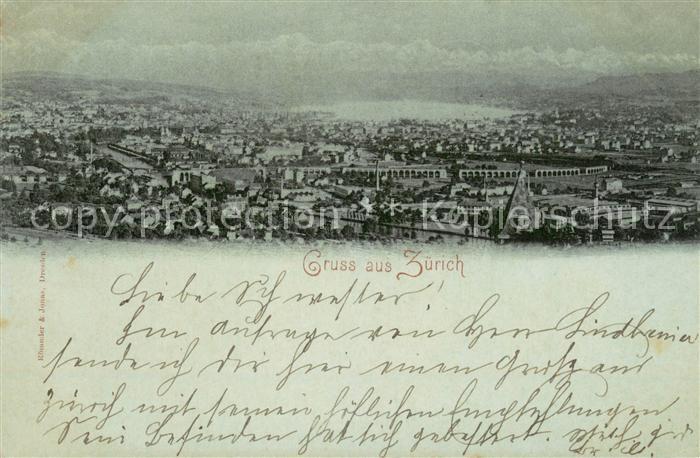 copy protection ✦ Kopierschutz
Gruss aus Zürich
Römmler & Jonas, Dresden
Liebe Schwester!
Im Auftrage von Herr Lindbauer
sende ich dir hier einen Gruß aus
Zürich mit seinen höflichen Empfehlungen
Sein Befinden hat sich gebessert.